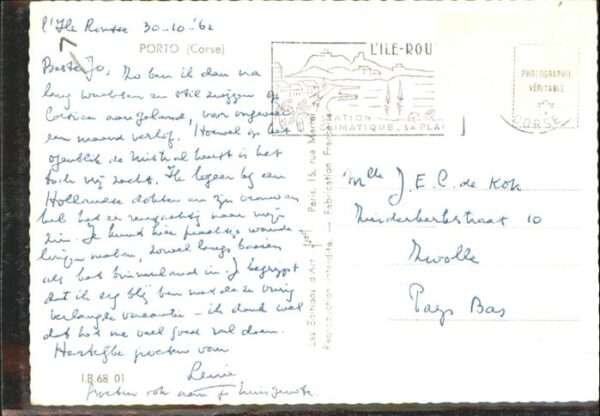 l'Ile Rousse 30-10-'62
PORTO (Corse)
Beste Jo, Zo ben ik dan na
lang wachten en stilzwijgen op
Corsica aangeland, voor ongeveer
een maand verlof. Hoewel op het
ogenblik de Mistral heerst is het
toch vrij zacht. Ik logeer bij een
Hollandse dokter en zijn vrouw en
heb het er reusachtig naar mijn
zin. Je kunt hier prachtige wande
lingen maken, zowel langs
als het binnenland in. Je begrijpt
dat ik erg blij ben met deze vurig
verlangde vacantie - ik denk wel
dat het me veel goed zal doen.
Hartelijke groeten van
Groeten ook aan je huisgenote
I.B 68 01
L'ILE-ROU
STATION
CLIMATIQUE. SA PLAG
PHOTOGRAPHIE
VÉRITABLE
CORSE
Les Editions d'Art Yvon Paris, 15, rue Martel
Reproduction interdite - Fabrication Française
Mlle J. E. C. de Kok
10
Zwolle
Pays Bas